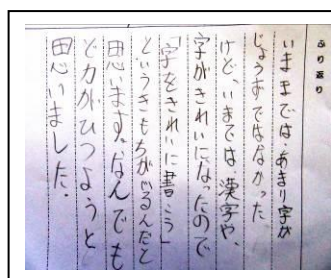 ふり返り
いままでは、あまり字が
じょうずではなかった
けど、いまでは漢字や、
字がきれいになったので
「字をきれいに書こう」
というきもちがいるんだと
思います。なんでも
ど力がひつようと
思いました。